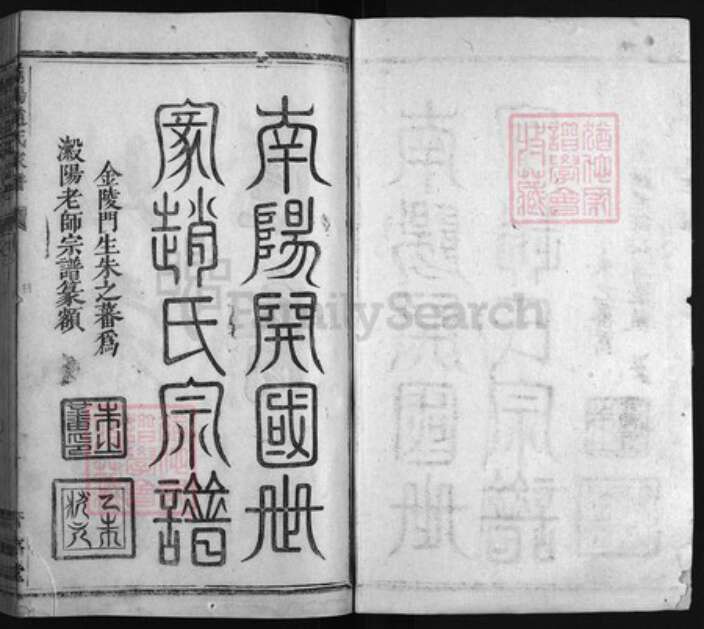 南陽開國世
家趙氏宗譜
金陵門生朱之蕃爲
瀔陽老師宗譜篆額
朱之蕃印
乙未狀元
FamilySearch